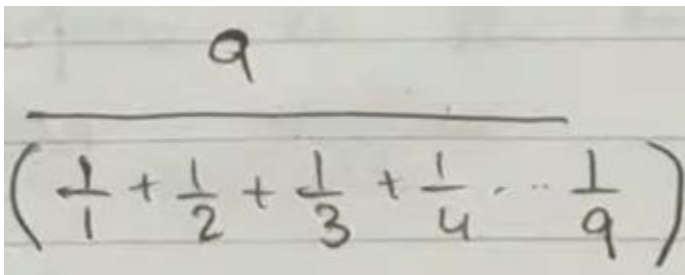 9
(1/1 + 1/2 + 1/3 + 1/4 ... 1/9)